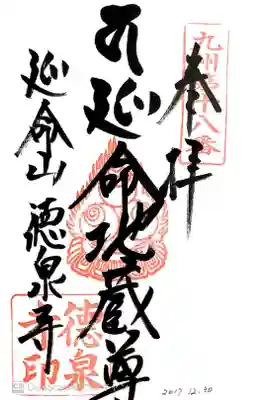 九州第十八番
奉拝
延命地蔵尊
延命山 徳泉寺
徳泉寺印
2017.12.30